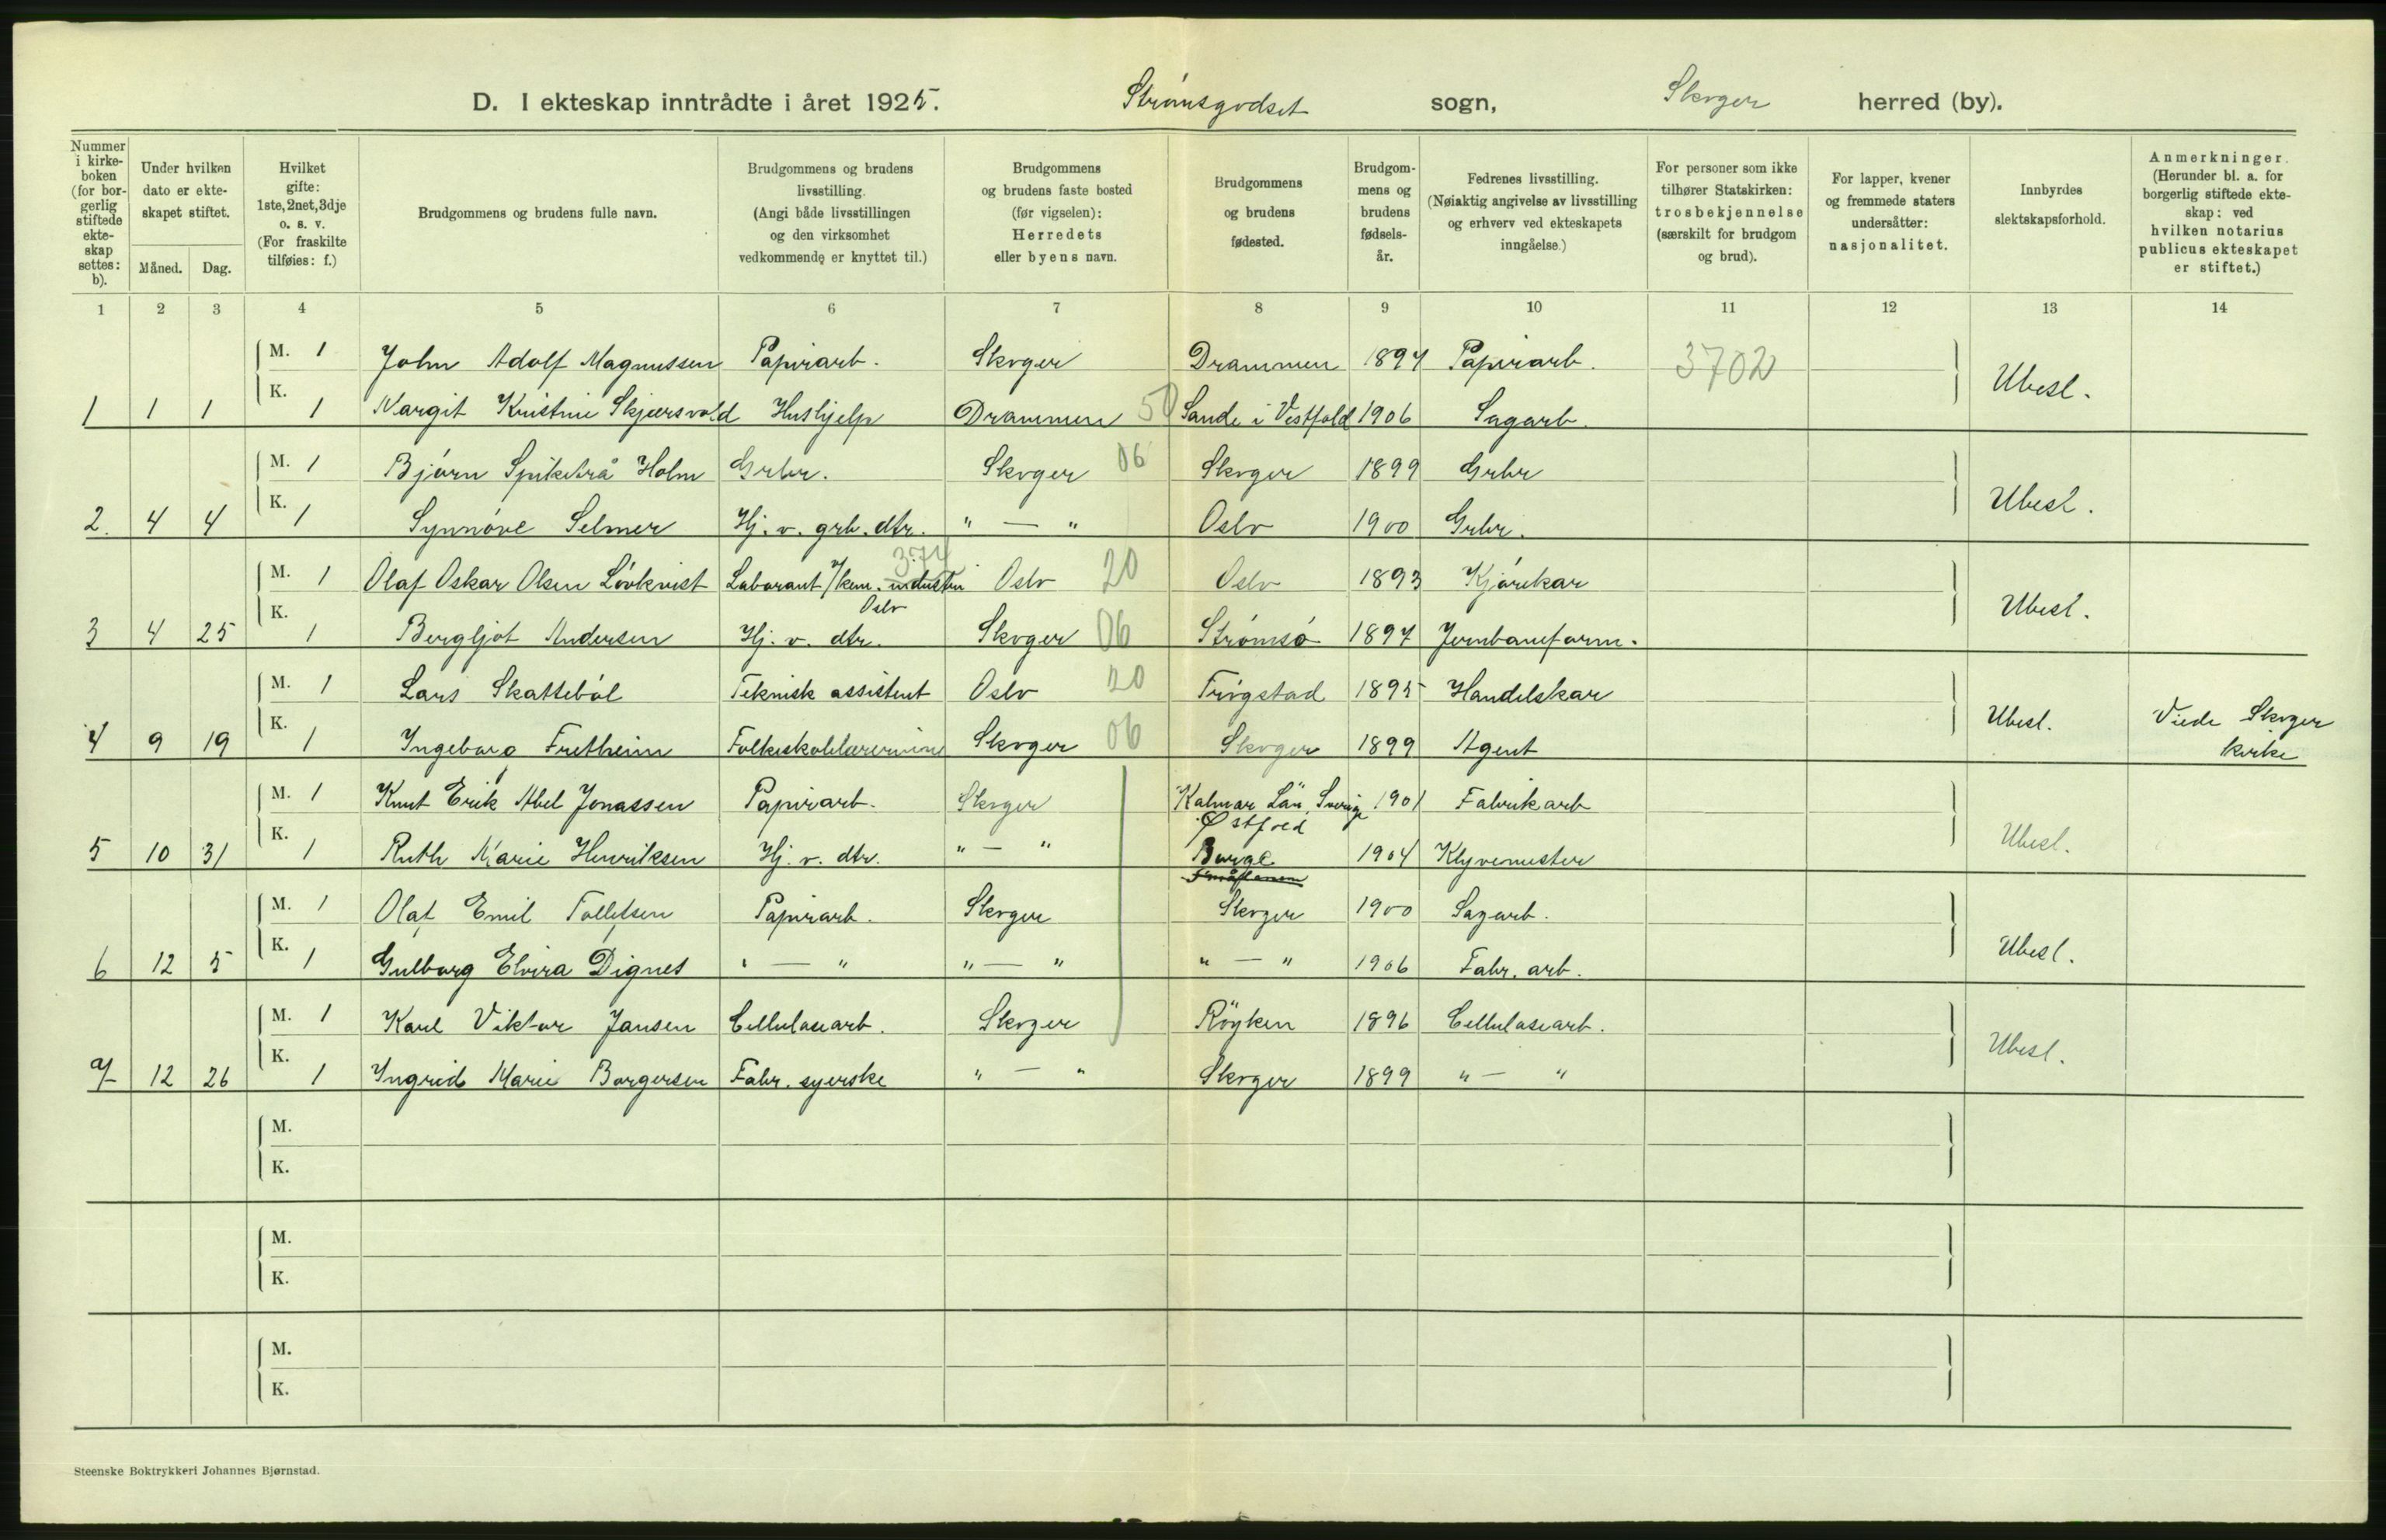 D. I ekteskap inntrådte i året 1925. Strømsgodset sogn, Skoger herred (by).
Nummer i kirkeboken (for borgerlig stiftede ekteskap settes: b).
Under hvilken dato er ekteskapet stiftet.
Måned. Dag.
Hvilket gifte: 1ste, 2net, 3dje o. s. v. (For fraskilte tilføies: f.)
Brudgommens og brudens fulle navn.
Brudgommens og brudens livsstilling. (Angi både livsstillingen og den virksomhet vedkommende er knyttet til.)
Brudgommens og brudens faste bosted (før vigselen): Herredets eller byens navn.
Brudgommens og brudens fødested.
Brudgommens og brudens fødselsår.
Fedrenes livsstilling. (Nøiaktig angivelse av livsstilling og erhverv ved ekteskapets inngåelse.)
For personer som ikke tilhører Statskirken: trosbekjennelse (særskilt for brudgom og brud).
For lapper, kvener og fremmede staters undersåtter: nasjonalitet.
Innbyrdes slektskapsforhold.
Anmerkninger. (Herunder bl. a. for borgerlig stiftede ekteskap: ved hvilken notarius publicus ekteskapet er stiftet.)
1 2 3 4 5 6 7 8 9 10 11 12 13 14
M. 1 John Adolf Magnussen Papirarb. Skoger Drammen 1897 Papirarb. 3702
1 1 1 K. 1 Margit Kristine Skjærsvold Hushjelp Drammen 50 Sande i Vestfold 1906 Sagarb. Ubesl.
M. 1 Bjørn Spiketrå Holm Grbr. Skoger 06 Skoger 1899 Grbr
2. 4 4 K. 1 Synnøve Selmer Hj. v. grb. dtr. " — " Oslo 1900 Grbr. Ubesl.
M. 1 Olaf Oskar Olsen Lövkvist Laborant v/kem. industri Oslo 374 Oslo 20 Oslo 1893 Kjørekar
3 4 25 K. 1 Bergljot Andersen Hj. v. dtr. Skoger 06 Strømsø 1897 Jernbaneform. Ubesl.
M. 1 Lars Skattebøl Teknisk assistent Oslo 20 Trøgstad 1895 Handelskar
4 9 19 K. 1 Ingeborg Fretheim Folkeskolelærerinne Skoger 06 Skoger 1899 Agent Ubesl. Viede Skoger kirke
M. 1 Knut Erik Abel Jonassen Papirarb. Skoger Kalmar Län, Sverige 1901 Fabrikarb
5 10 31 K. 1 Ruth Marie Henriksen Hj. v. dtr. " — " Østfold Borge 1904 Klyvemester Ubesl.
M. 1 Olaf Emil Tollefsen Papirarb. Skoger Skoger 1900 Sagarb.
6 12 5 K. 1 Gulborg Elvira Dignes " — " " — " " — " 1906 Fabr. arb. Ubesl.
M. 1 Karl Viktor Jansen Cellulosearb. Skoger Röyken 1896 Cellulosearb.
7 12 26 K. 1 Ingrid Marie Borgersen Fabr. syerske " — " Skoger 1899 " — " Ubesl.
M.
K.
M.
K.
M.
K.
Steenske Boktrykkeri Johannes Bjørnstad.